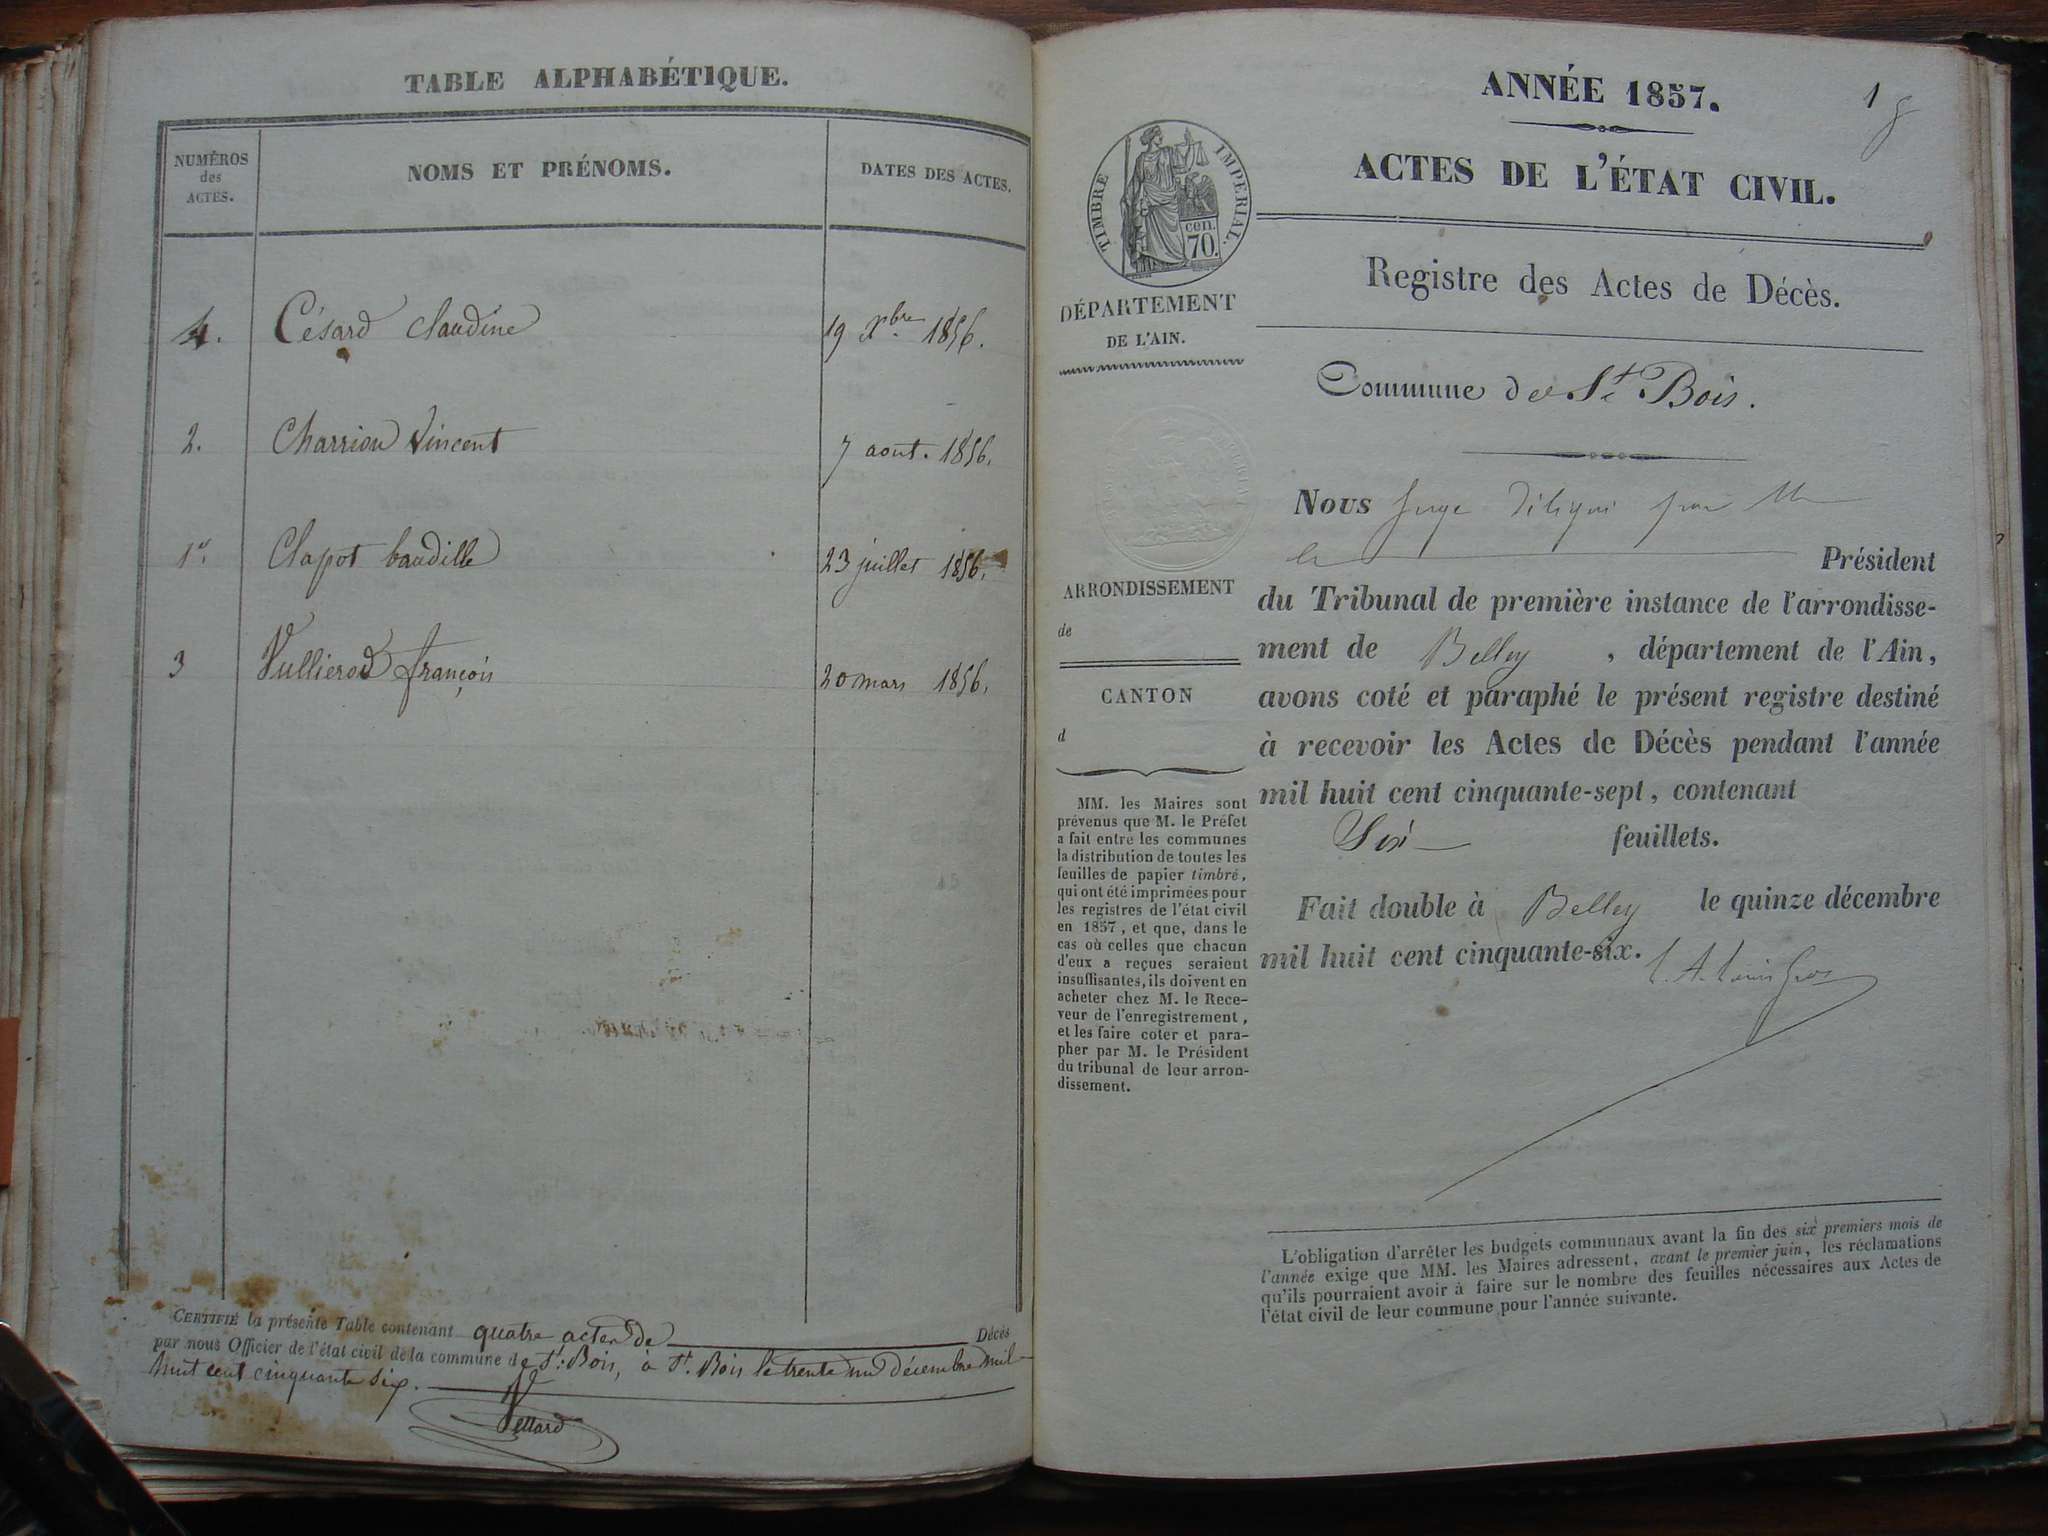 TABLE ALPHABÉTIQUE.
NUMÉROS
des
ACTES.
NOMS ET PRÉNOMS.
DATES DES ACTES.
4. Césard Claudine 19 Xbre 1856.
2. Charriou Vincent 7 aout. 1856.
1er. Clapot baudille 23 juillet 1856.
3 Vullierod françois 20 mars 1856.
CERTIFIÉ la présente Table contenant quatre actes de Décès
par nous Officier de l'état civil de la commune de St. Bois, à St. Bois le trente un décembre mil
huit cent cinquante six.
Vettard
1
ANNÉE 1857.
ACTES DE L'ÉTAT CIVIL.
TIMBRE IMPÉRIAL.
cen.
70.
Registre des Actes de Décès.
DÉPARTEMENT
DE L'AIN.
Commune de St. Bois.
ARRONDISSEMENT
de
CANTON
d
MM. les Maires sont
prévenus que M. le Préfet
a fait entre les communes
la distribution de toutes les
feuilles de papier timbré,
qui ont été imprimées pour
les registres de l'état civil
en 1857, et que, dans le
cas où celles que chacun
d'eux a reçues seraient
insuffisantes, ils doivent en
acheter chez M. le Rece-
veur de l'enregistrement,
et les faire coter et para-
pher par M. le Président
du tribunal de leur arron-
dissement.
Nous Juge délégué par Mr
le Président
du Tribunal de première instance de l'arrondisse-
ment de Belley, département de l'Ain,
avons coté et paraphé le présent registre destiné
à recevoir les Actes de Décès pendant l'année
mil huit cent cinquante-sept, contenant
Six feuillets.
Fait double à Belley le quinze décembre
mil huit cent cinquante-six.
L'obligation d'arrêter les budgets communaux avant la fin des six premiers mois de
l'année exige que MM. les Maires adressent, avant le premier juin, les réclamations
qu'ils pourraient avoir à faire sur le nombre des feuilles nécessaires aux Actes de
l'état civil de leur commune pour l'année suivante.